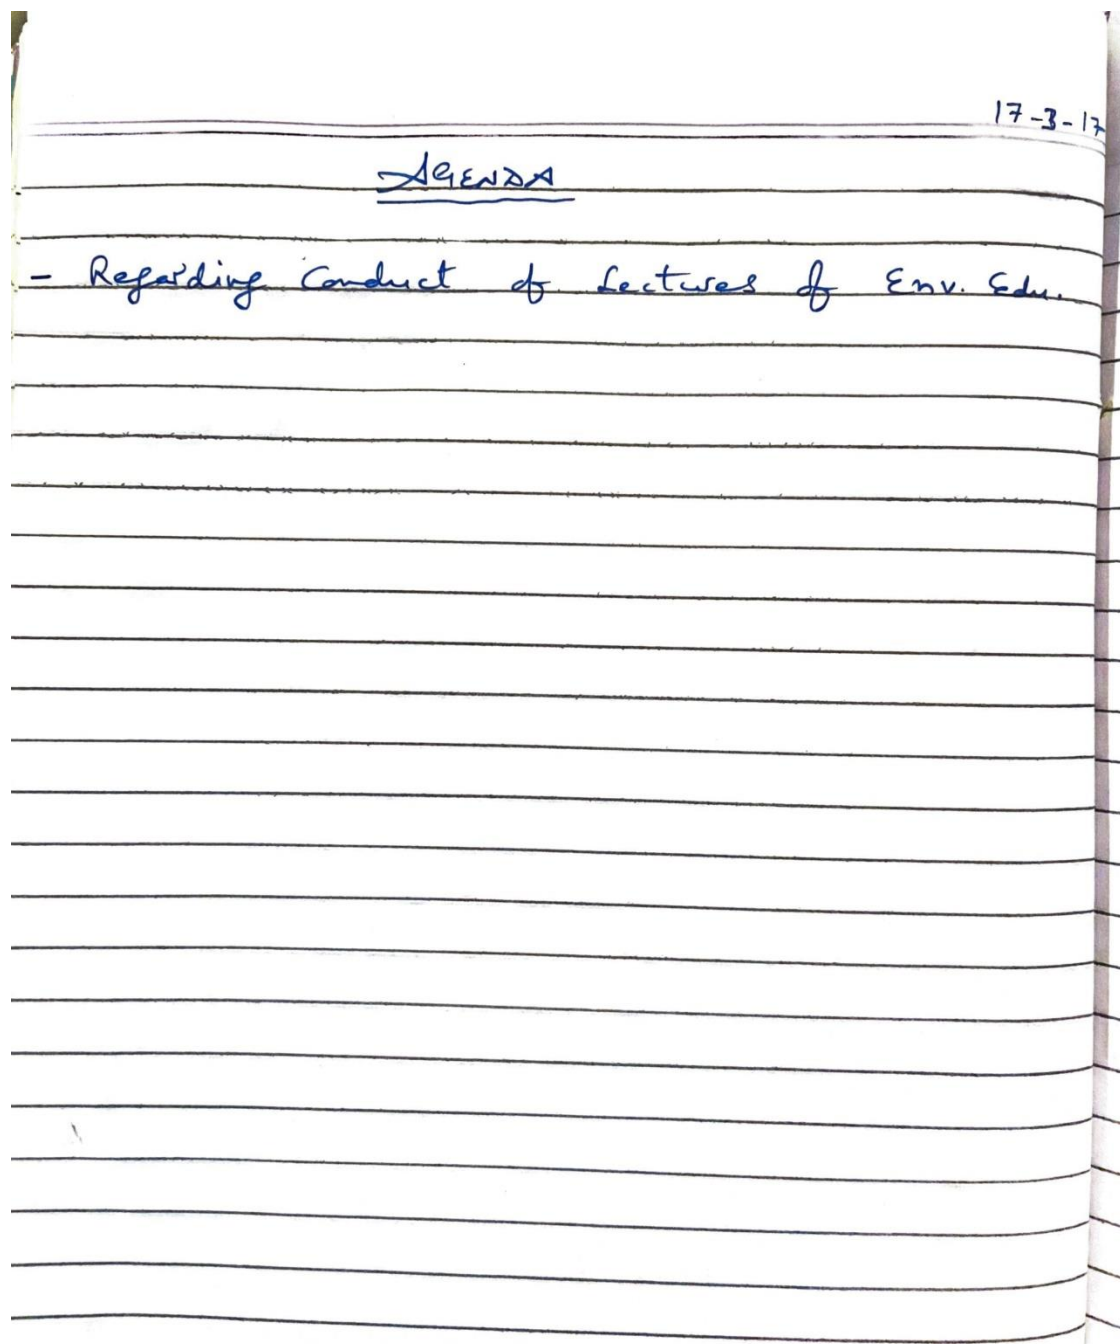 17-3-17
AGENDA
- Regarding Conduct of Lectures of Env. Edu.